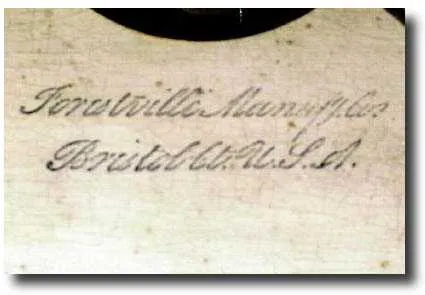 Forestville Manufg. Co.
Bristol Ct. U.S.A.